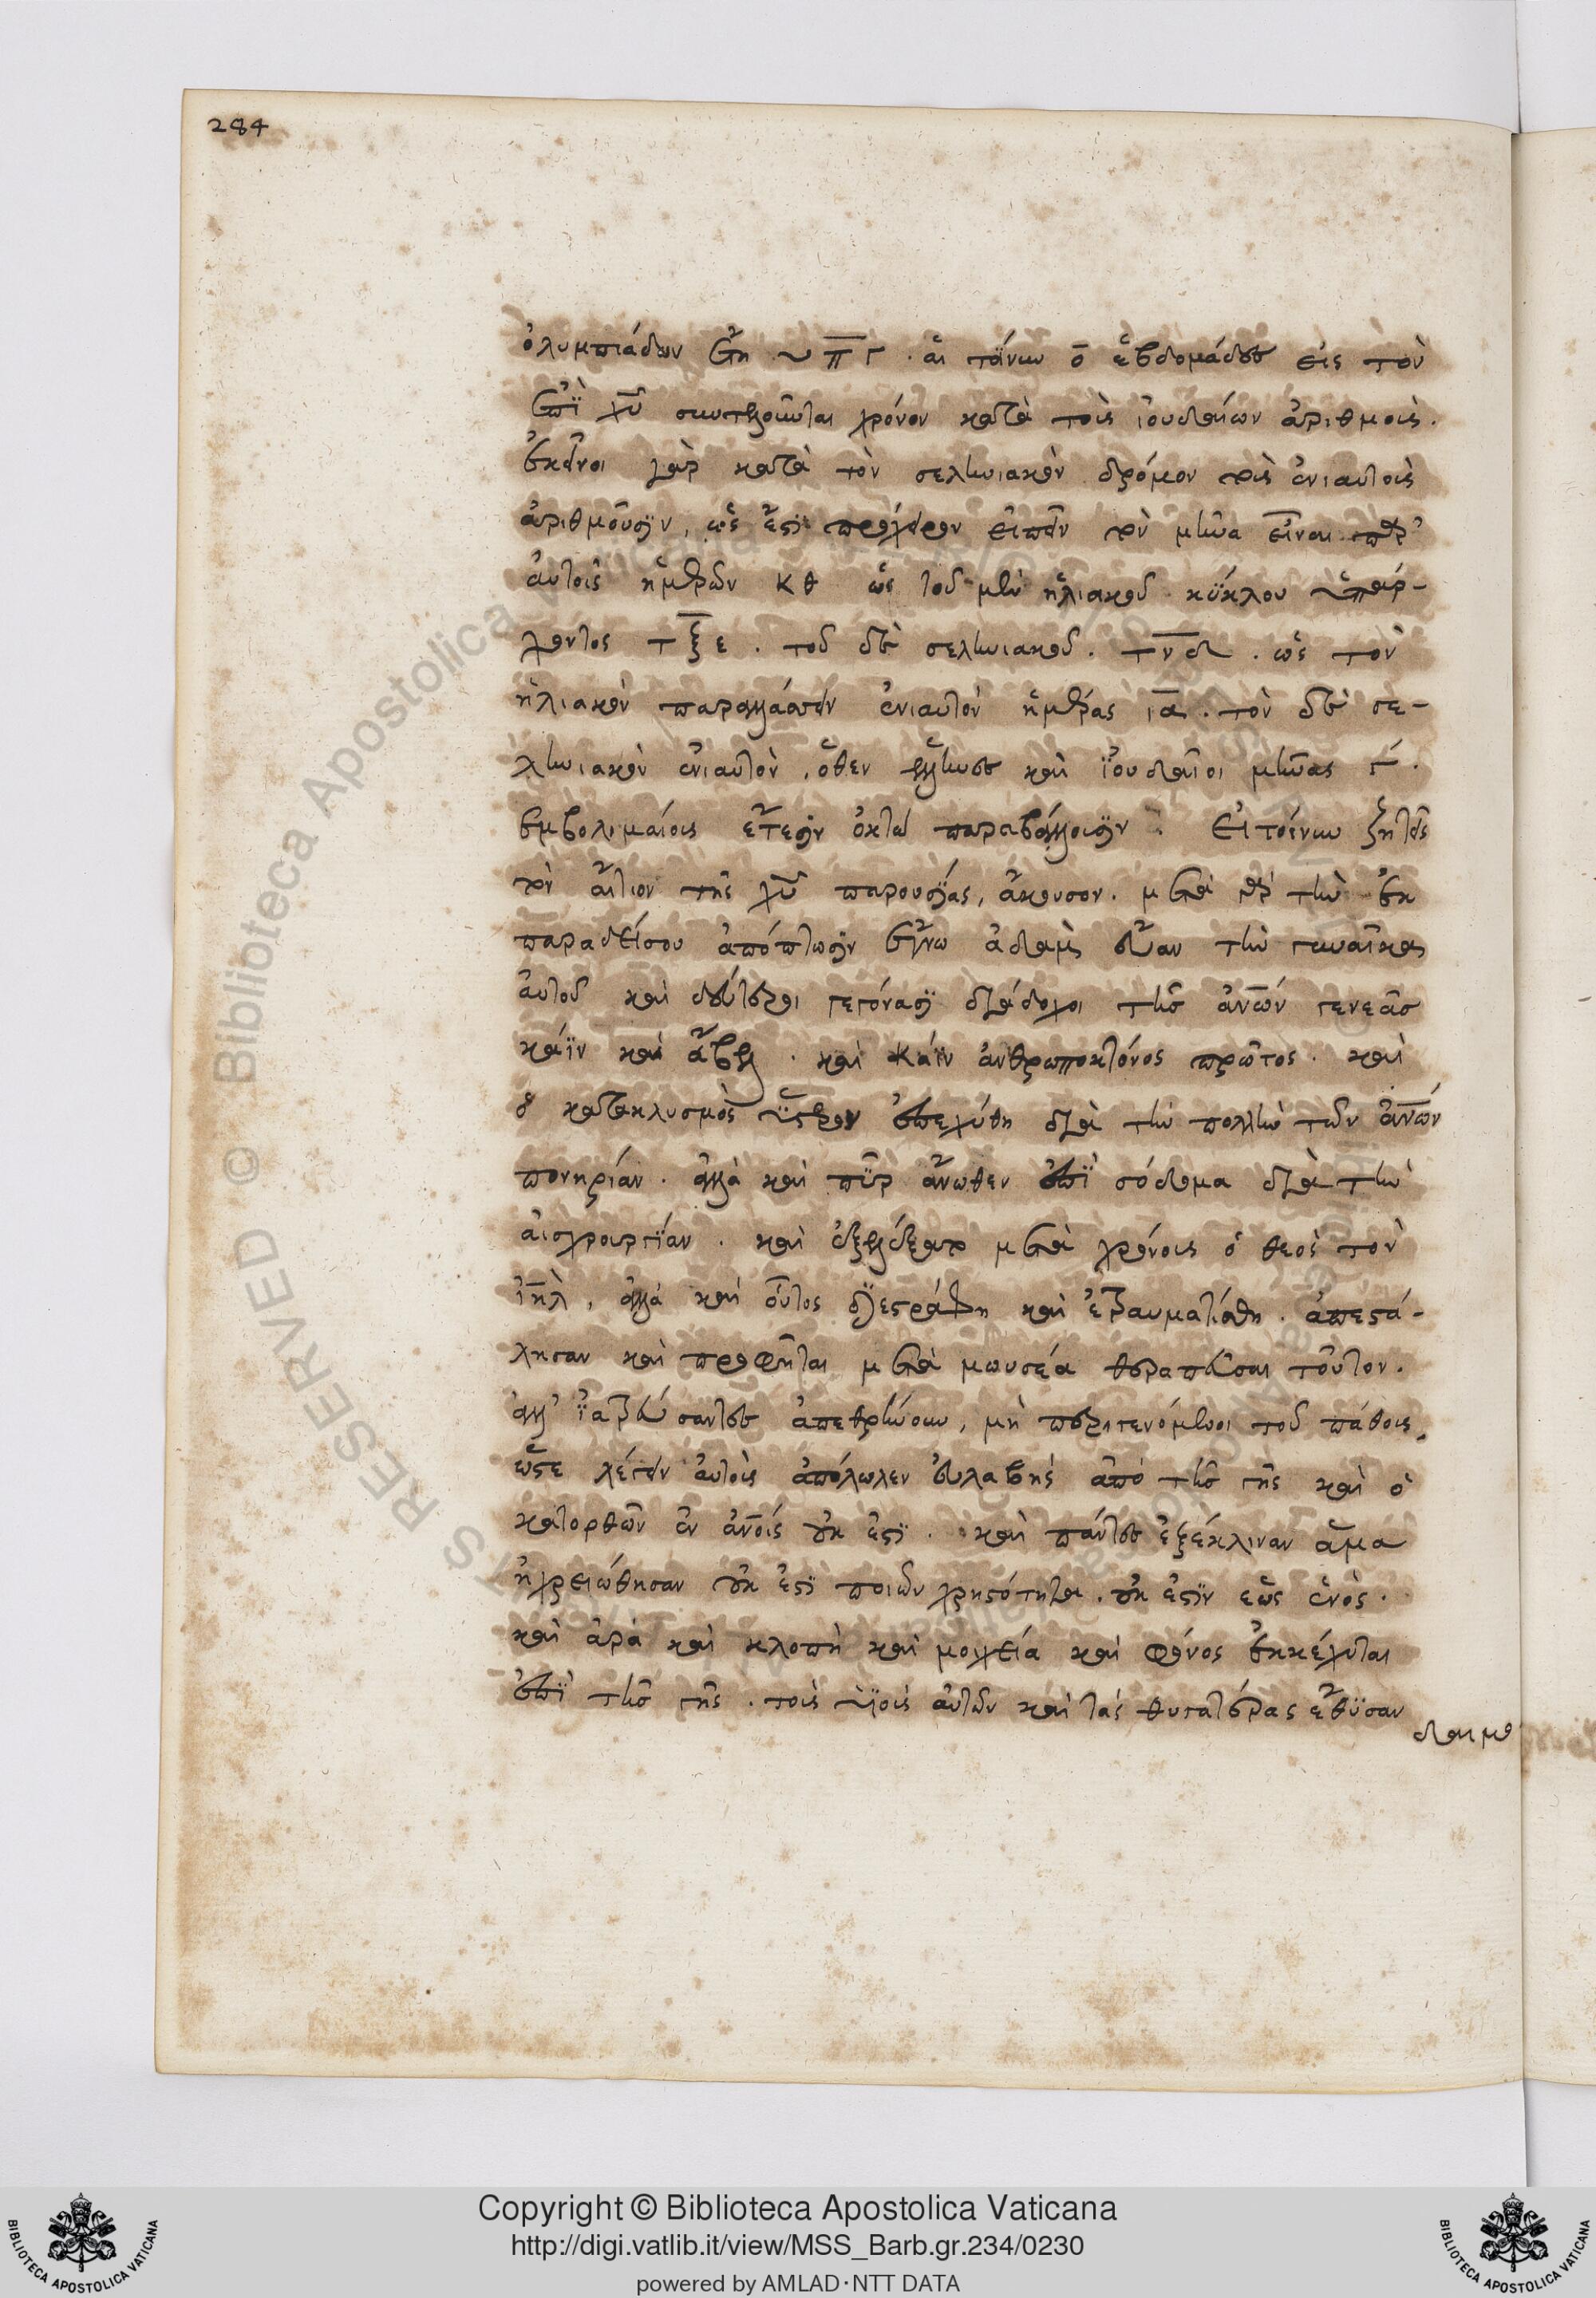 284
ὀλυμπιάδων ἔτη υπγ. αἱ τοίνυν ο ἑβδομάδες εἰς τὸν
ἐπὶ χυ συντελοῦνται χρόνον κατὰ τοὺς ἰουδαίων ἀριθμούς.
ἐκεῖνοι γὰρ κατὰ τὸν σεληνιακὸν δρόμον τοὺς ἐνιαυτοὺς
ἀριθμοῦσιν, ὡς ἔστι πρόχειρον εἰπεῖν τὸν μῆνα εἶναι παρ'
αὐτοῖς ἡμερῶν κθ ὡς τοῦ μὲν ἡλιακοῦ κύκλου ὑπάρ-
χοντος τξε. τοῦ δὲ σεληνιακοῦ. τνδ. ὡς τὸν
ἡλιακὸν παραλλάσσειν ἐνιαυτὸν ἡμέρας ια. τὸν δὲ σε-
ληνιακὸν ἐνιαυτὸν, ὅθεν ἕλληνες καὶ ἰουδαῖοι μῆνας γ.
ἐμβολιμαίους ἔτεσιν ὀκτὼ παραβάλλουσιν. Εἰ τοίνυν ζητεῖς
τὸν αἴτιον τῆς χυ παρουσίας, ἄκουσον. μετὰ γὰρ τὴν ἐκ
παραδείσου ἀπόπτωσιν ἔγνω ἀδαμ εὔαν τὴν γυναῖκα
αὐτοῦ καὶ δεύτεροι γεγόνασι διάδοχοι τῆς ανων γενεᾶς
κάϊν καὶ ἄβελ. καὶ κάϊν ἀνθρωποκτόνος πρῶτος. καὶ
ὁ κατακλυσμὸς ὕστερον ἐπεχύθη διὰ τὴν πολλὴν τῶν ανων
πονηρίαν. ἀλλὰ καὶ πῦρ ἄνωθεν ἐπὶ σόδομα διὰ τὴν
αἰσχρουργίαν. καὶ ἐξελέξατο μετὰ χρόνους ὁ θεὸς τὸν
ιηλ, ἀλλὰ καὶ οὗτος διεστράφη καὶ ἐτραυματίσθη. ἀπεστά-
λησαν καὶ προφῆται μετὰ μωυσέα θεραπεῦσαι τοῦτον.
ἀλλ' ἰατρεύσαντες ἀπεθρήνουν, μὴ περιγενόμενοι τοῦ πάθους,
ὥστε λέγειν αὐτοὺς ἀπόλωλεν εὐλαβὴς ἀπὸ τῆς γῆς καὶ ὁ
κατορθῶν ἐν ανοις οὐκ ἔστι. καὶ πάντες ἐξέκλιναν ἅμα
ἠχρειώθησαν οὐκ ἔστι ποιῶν χρηστότητα. οὐκ ἔστιν ἕως ἑνός.
καὶ ἀρὰ καὶ κλοπὴ καὶ μοιχεία καὶ φόνος ἐκκέχυται
ἐπὶ τῆς γῆς. τοὺς υἱοὺς αὐτῶν καὶ τὰς θυγατέρας ἔθυσαν
δαιμο
© Biblioteca Apostolica Vaticana
RESERVED
Copyright © Biblioteca Apostolica Vaticana
http://digi.vatlib.it/view/MSS_Barb.gr.234/0230
powered by AMLAD·NTT DATA
BIBLIOTECA APOSTOLICA VATICANA
BIBLIOTECA APOSTOLICA VATICANA